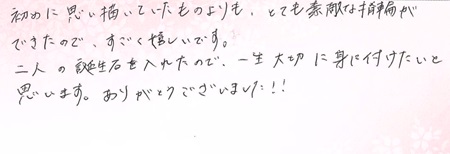 初めに思い描いていたものよりも、とても素敵な指輪が
できたので、すごく嬉しいです。
二人の誕生石を入れたので、一生大切に身に付けたいと
思います。ありがとうございました!!